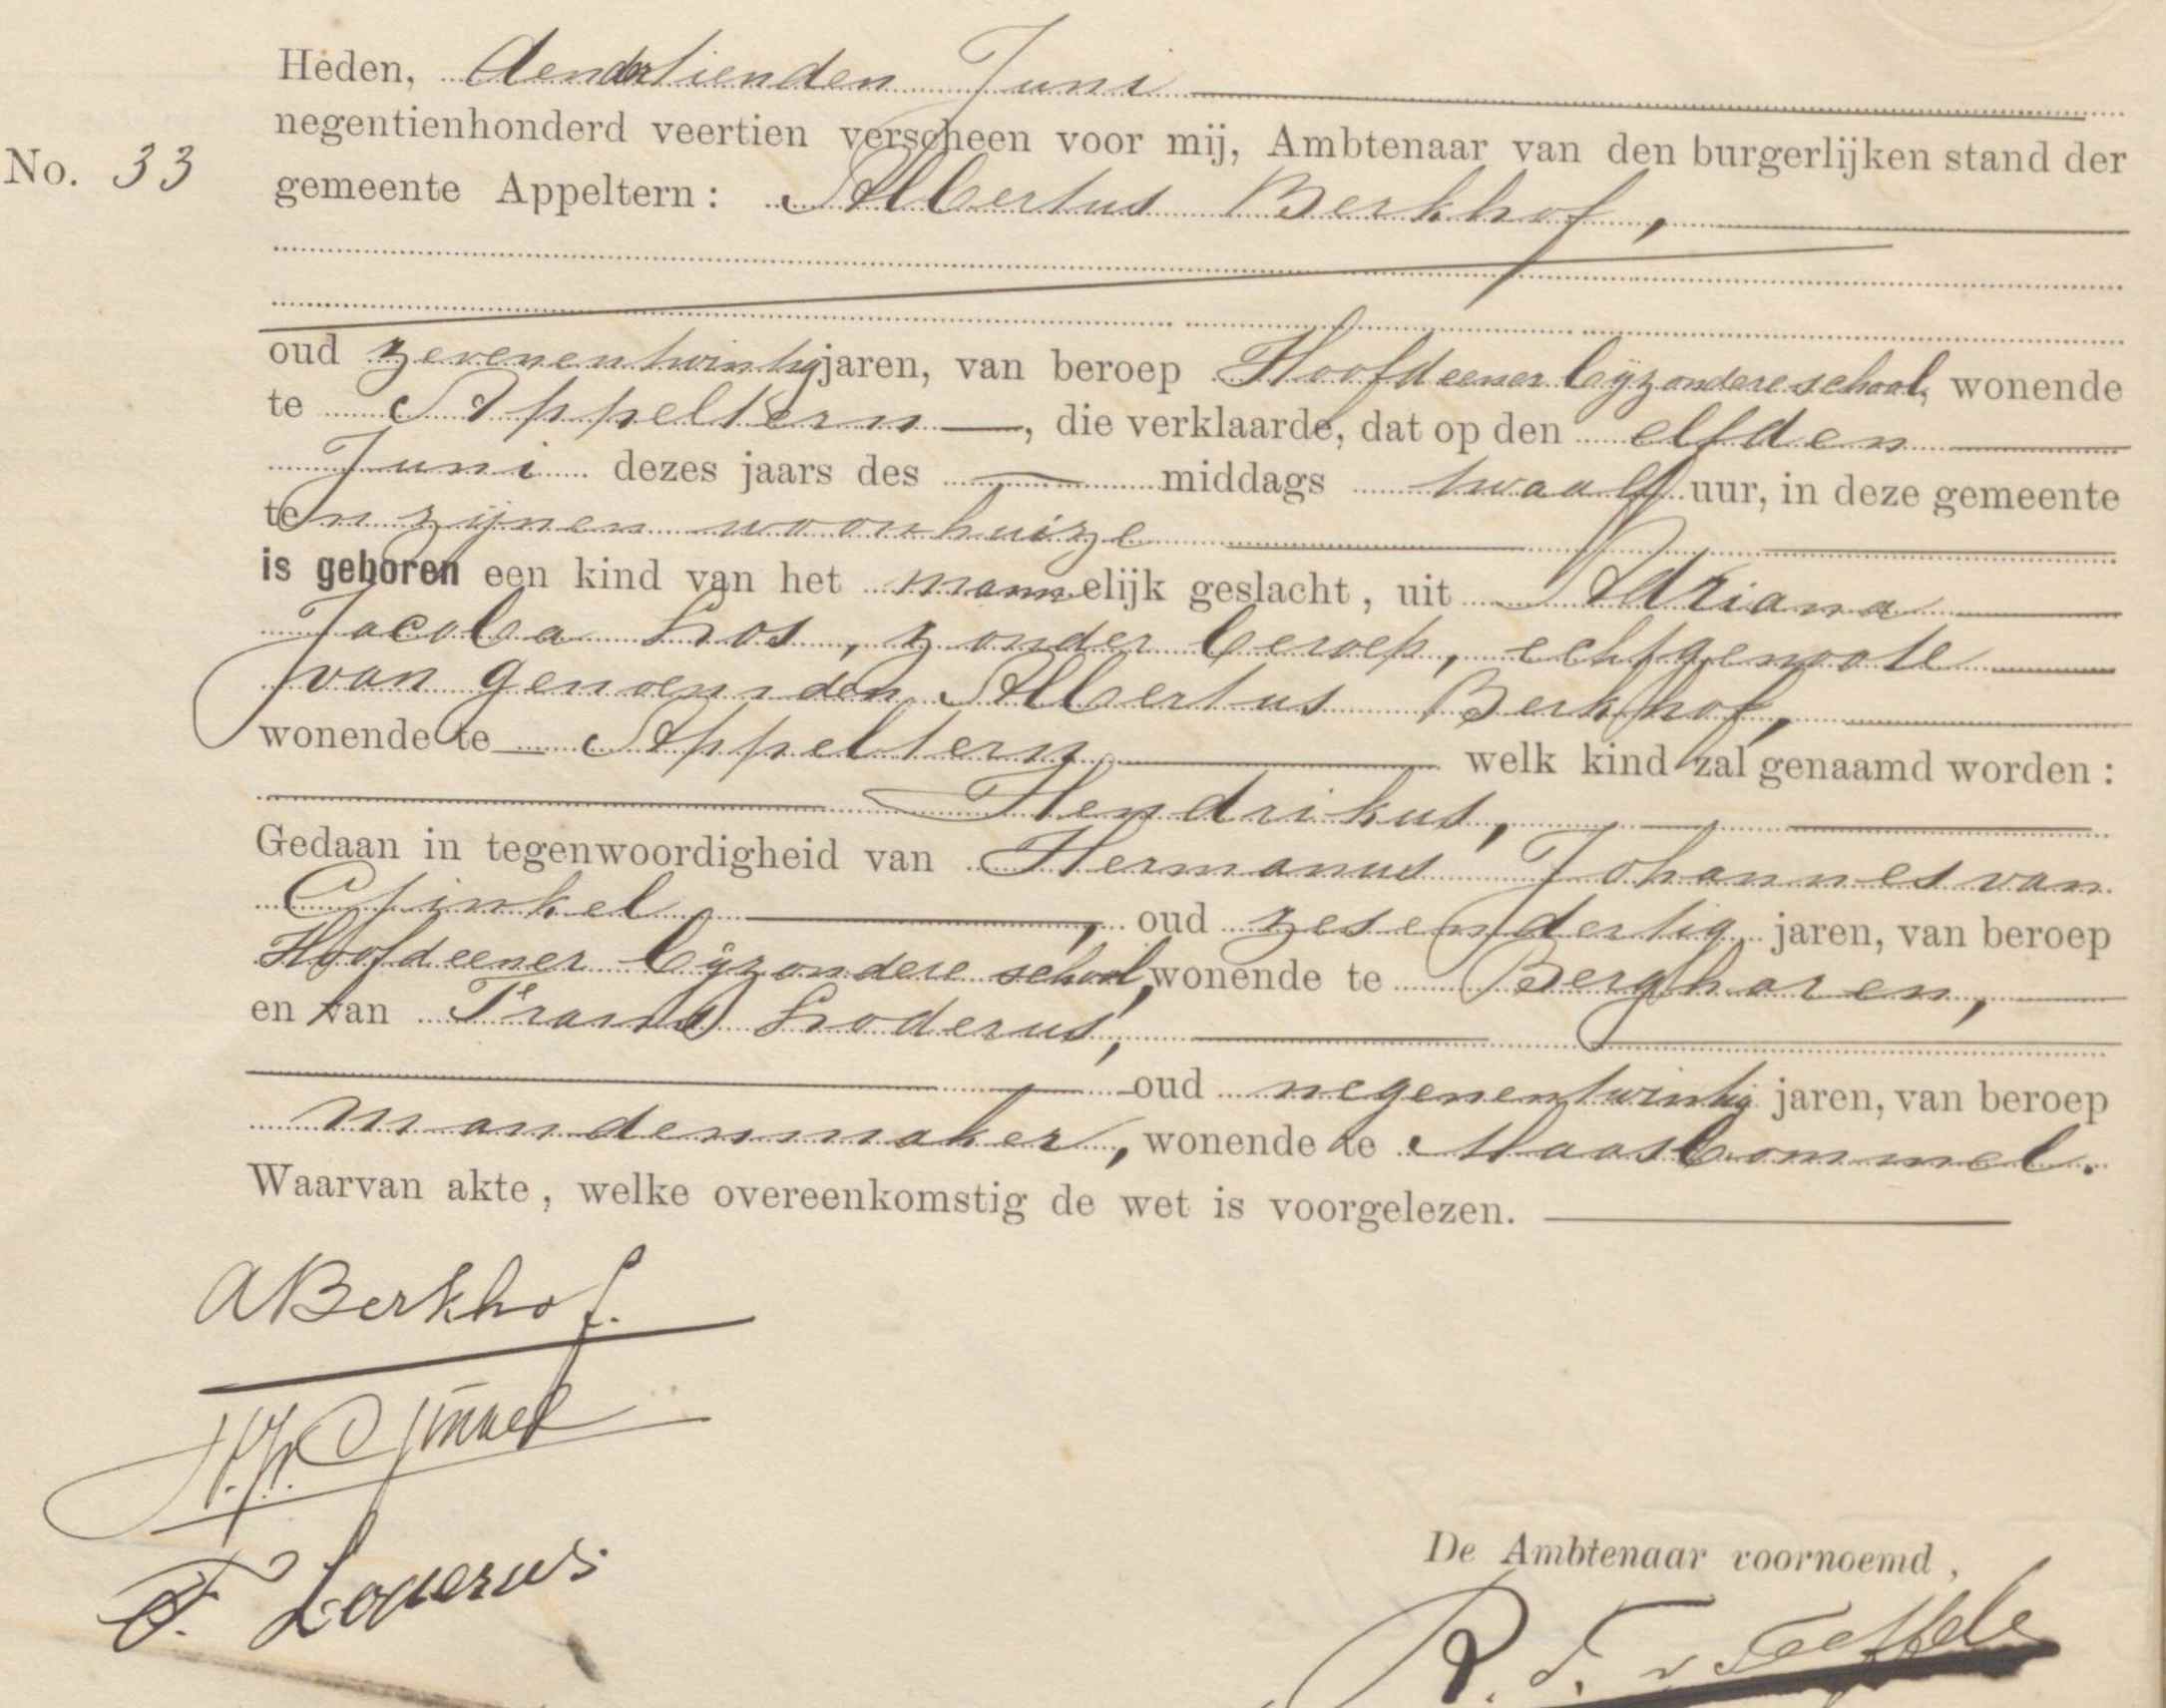 Heden, den dertienden Juni
negentienhonderd veertien verscheen voor mij, Ambtenaar van den burgerlijken stand der
No. 33
gemeente Appeltern: Albertus Berkhof,
oud zevenentwintig jaren, van beroep Hoofd eener byzondere school, wonende
te Appeltern, die verklaarde, dat op den elfden
Juni dezes jaars des middags twaalf uur, in deze gemeente
ten zijnen woonhuize
is geboren een kind van het mannelijk geslacht, uit Adriana
Jacoba Los, zonder beroep, echtgenoote
van genoemden Albertus Berkhof,
wonende te Appeltern welk kind zal genaamd worden:
Hendrikus,
Gedaan in tegenwoordigheid van Hermanus Johannes van
Ginkel, oud zesendertig jaren, van beroep
Hoofd eener byzondere school, wonende te Bergharen,
en van Frans Loderus,
oud negenentwintig jaren, van beroep
mandenmaker, wonende te Maasbommel.
Waarvan akte, welke overeenkomstig de wet is voorgelezen.
ABerkhof.
F. Loderus
De Ambtenaar voornoemd,